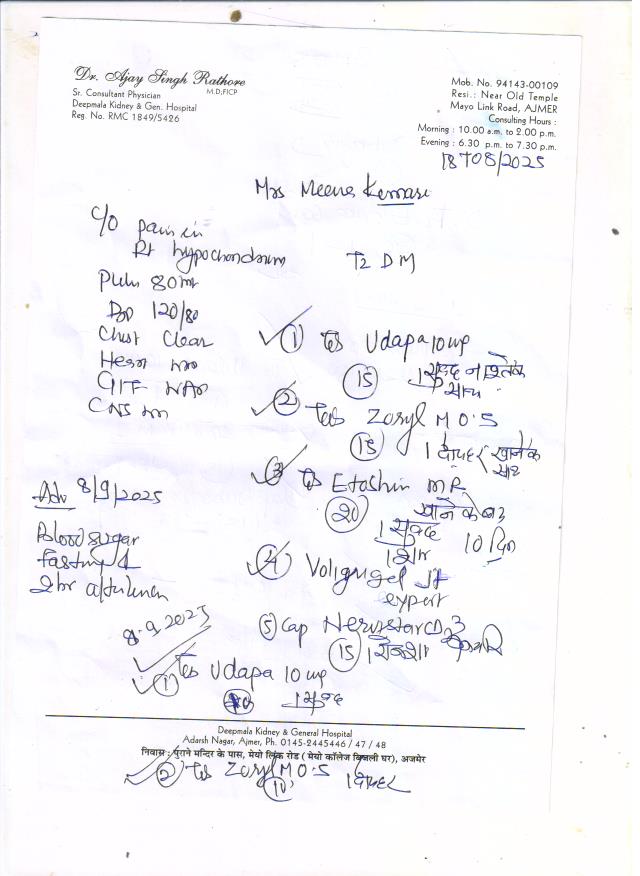 Dr. Ajay Singh Rathore
M.D,FICP
Sr. Consultant Physician
Deepmala Kidney & Gen. Hospital
Reg. No. RMC 1849/5426
Mob. No. 94143-00109
Resi.: Near Old Temple
Mayo Link Road, AJMER
Consulting Hours :
Morning : 10.00 a.m. to 2.00 p.m.
Evening : 6.30 p.m. to 7.30 p.m.
18/08/2025
Mrs Meena Kumari
C/O pain in
Rt hypochondrium
T2 DM
Puls 80
BP 120/80
Chest Clear
CNS
① Udapa 10 mg
⑮ 1 सुबह नाश्ते के
साथ
② Tab Zoryl M 0.5
⑮ 1 दोपहर खाने के
साथ
③ Etoshin MR
⑳ खाने के बाद
1 सुबह
1 शाम 10 दिन
④ Voligugel
expert
⑤ Cap D3
⑮ 1
Adv 8/9/2025
Blood sugar
Fasting &
2hr after
8.9.2025
① Tab Udapa 10 mg
1 सुबह
Deepmala Kidney & General Hospital
Adarsh Nagar, Ajmer, Ph. 0145-2445446 / 47 / 48
निवास : पुराने मन्दिर के पास, मेयो लिंक रोड ( मेयो कॉलेज बिजली घर), अजमेर
② Zoryl M 0.5 1 दोपहर